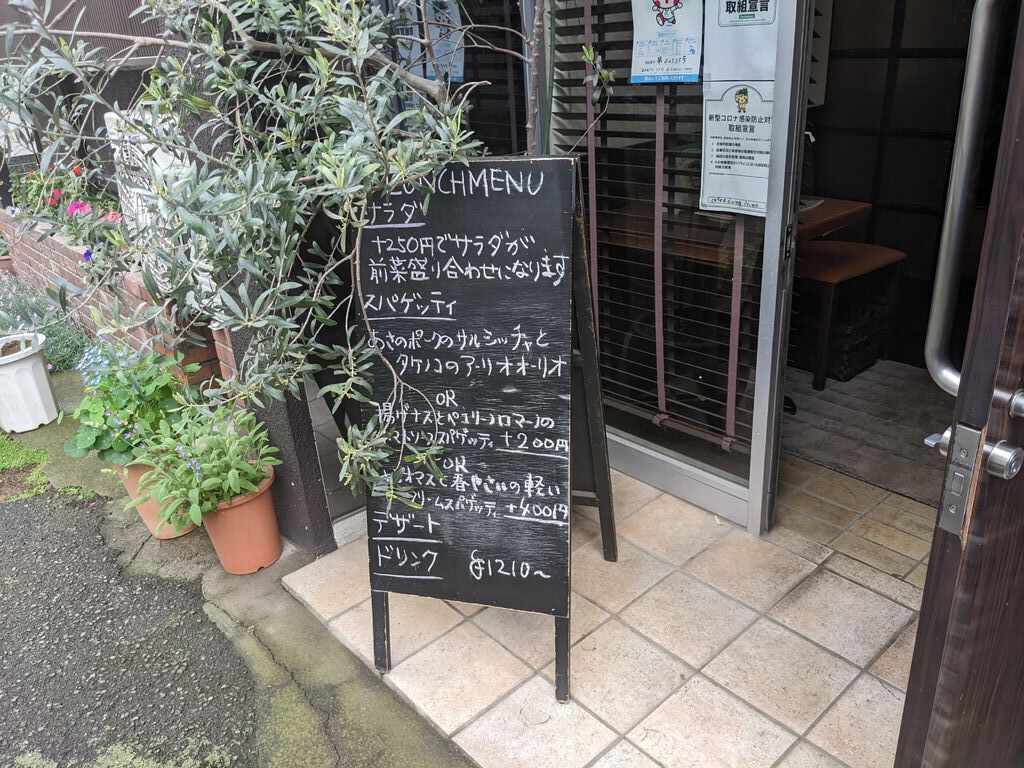 取組宣言
新型コロナ感染防止対
取組宣言
LUNCHMENU
サラダ
+250円でサラダが
前菜盛り合わせになります
スパゲッティ
あさのポークのサルシッチャと
タケノコのアーリオオーリオ
OR
揚げナスとペコリーノロマーノの
トマトソーススパゲッティ +200円
OR
春やさいの軽い
クリームスパゲッティ +400円
デザート
ドリンク ¥1210~